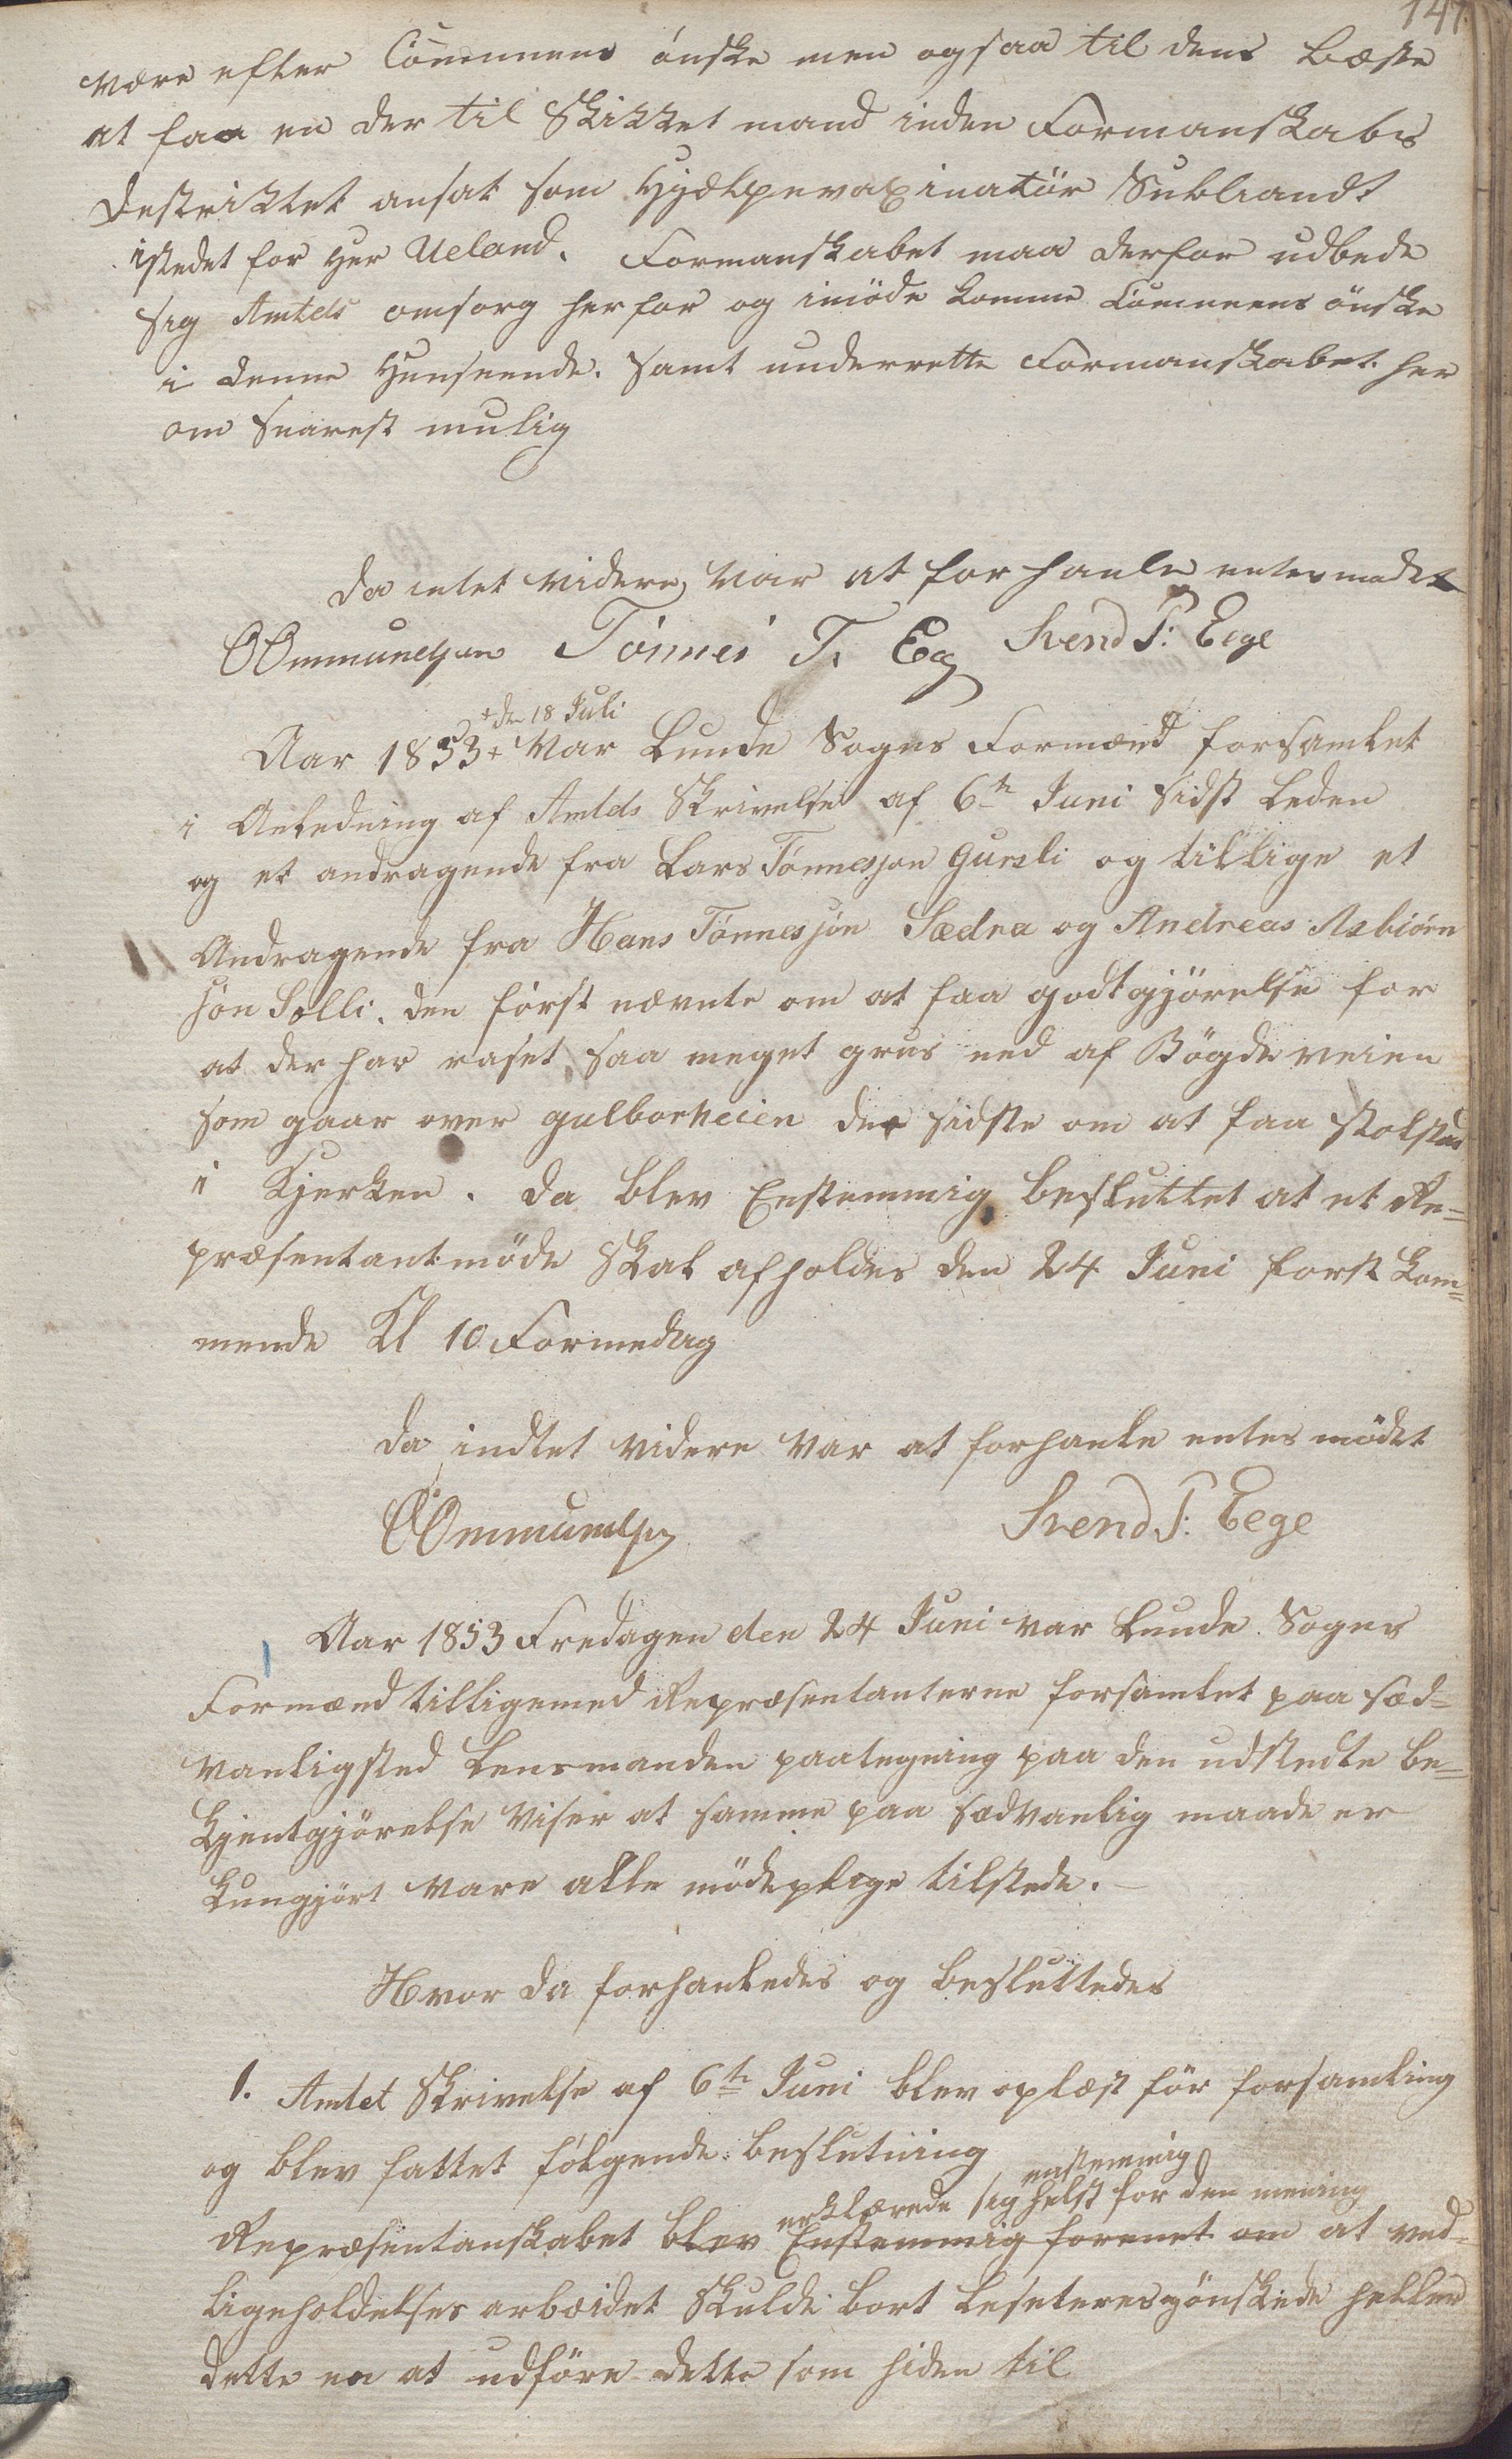 147
være efter Communens ønske men ogsaa til dens bæste
at faa en der til Skikket mand inden Formanskabs
Destriktet ansat som Hjelpevaxinatør Subliandt
istedet for Her Ueland. Formanskabet maa derfor udbede
sig Amtets omsorg herfor og imøde komme Communens ønske
i denne Henseende. Samt underrette Formanskabet her
om snarest mulig
Da intet videre var at forhanle entes mødet
OOmmundsen Tønnes T. Eeg Svend P: Eege
+den 18 Juli
Aar 1853+ Var Lunde Sogns Formænd forsamlet
i Anledning af Amtds Skrivelse af 6te Juni sidst leden
og et andragende fra Lars Tønnesson Gursli og tillige et
Andragende fra Hans Tønnessøn Sædna og Andreas Asbiørn
søn Solli. den først nævnte om at faa godtgjørelse for
at der har raset saa meget grus ned af Bøgdeveien
som gaar over gulborheien der sidste om at faa stolstad
i Kjerken. Da blev Enstemmig besluttet at et Re=
præsentantmøde Skal afholdes den 24 Juni først kom=
mende Kl 10 Formedag
Da indtet videre var at forhanle entes mødet
OOmmundsen Svend P: Eege
Aar 1853 Fredagen den 24 Juni var Lunde Sogns
Formænd tilligemed Repræsentanterne forsamlet paa sæd=
vanligsted Lensmanden paategning paa den udstedte be=
kjentgjørelse viser at samme paa sædvanlig maade er
Kungjørt vare alle mødeplige tilstede.
Hvor da forhanledes og besluttedes
1. Amtet Skrivelse af 6te Juni blev oplæst før forsamling
og blev fattet følgende beslutning
enstemmig
erklærede sig helst for den mening
Repræsentanskabet blev Enstemmig forenet om at ved=
ligeholdelses arbeidet skulde bort leseteres ønskede heller
dette en at udføre dette som hiden til